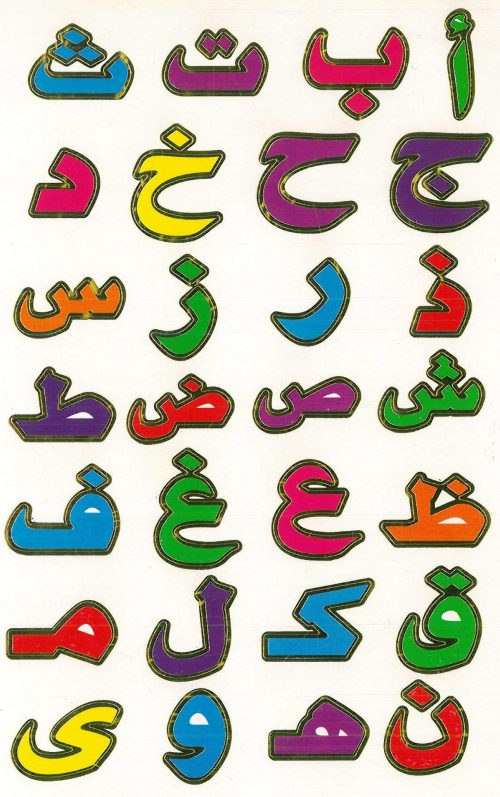 أ ب ت ث
ج ح خ د
ذ ر ز س
ش ص ض ط
ظ ع غ ف
ق ك ل م
ن ه و ى